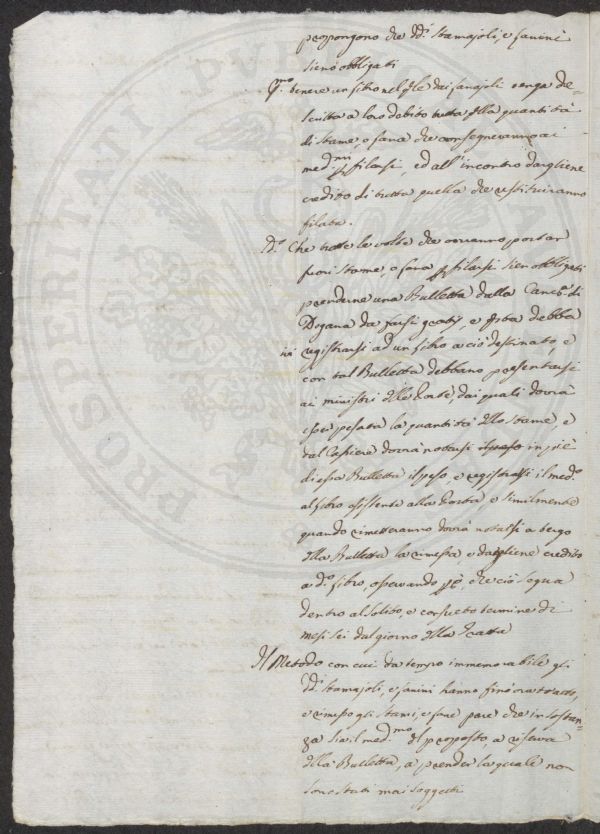 propongono che dd.i stamajoli, e lanini
sieno obbligati
p.mo tenere un libro nel q.le dai lanajoli venga de=
scritta a loro debito tutta q.lla quantità
di stame, o lana che consegneranno ai
med.mi p filarsi, ed all'incontro dargliene
credito di tutta quella che restituiranno
filata.
2.o Che tutte le volte che occorranno portar
fuori stame, o lana p filarsi sien obbligati
prenderne una Bulletta dalla Canc.a di
Dogana da farsi gratis, e q.sta debba
ivi registrarsi ad un libro a ciò destinato, e
con tal Bulletta debbano presentarsi
ai ministri d.lle Porte, dai quali dovrà
esser pesata la quantità d.llo stame, e
dal Cassiere dovrà notarsi in piè
di essa Bulletta il peso, e registrarsi il med.o
al libro esistente alla Porta, e similmente
quando rimetteranno dovrà notarsi a tergo
d.lla Bulletta la rimessa, e dargliene credito
a d.o libro, osservando però, che ciò segua
dentro al solito, e consueto termine di
mesi sei dal giorno d.lla Tratta
Il Metodo con cui da tempo immemorabile gli
dd.i stamajoli, e lanini hanno finora tratto,
e rimesso gli stami, e lane pare che in sostan=
za sia il med.mo d.l proposto, a riserva
d.lla Bulletta, a prender la quale non
sono stati mai soggetti
PROSPERITATI PVBLICAE